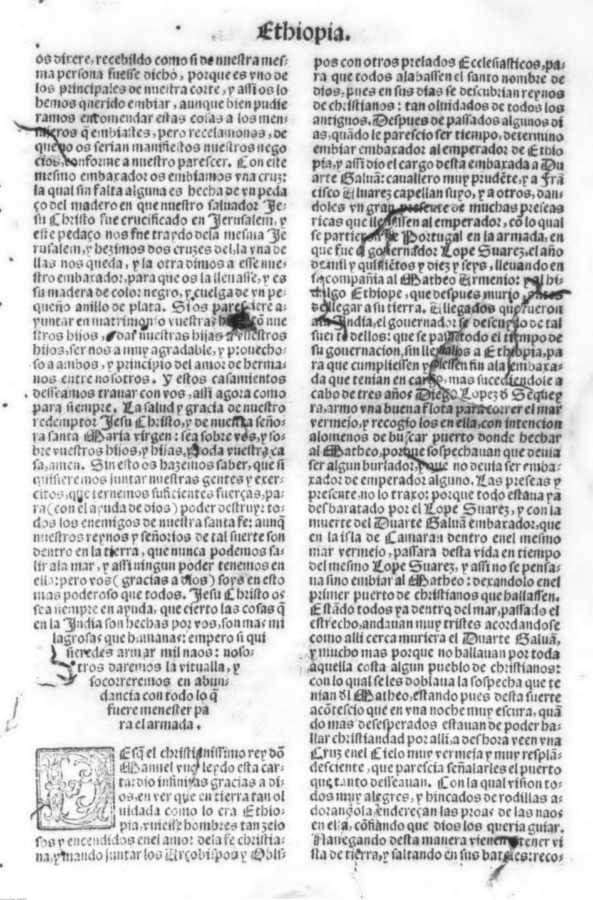 Ethiopia.
os dixere, recebildo como si de nuestra mes-
ma persona fuesse dicho, porque es vno de
los principales de nuestra corte, y assi os lo
hemos querido embiar, aunque bien pudie
ramos encomendar estas cosas a los men-
sageros q̃ embiastes, pero recelamonos, de
que no os serian manifiestos nuestros nego
cios, conforme a nuestro parescer. Con este
mesmo embaxador os embiamos vna cruz:
la qual sin falta alguna es hecha de vn peda
ço del madero en que nuestro saluador Je-
su Christo fue crucificado en Jerusalem, y
este pedaço nos fue traydo de la mesma Je
rusalem, y hezimos dos cruzes del, la vna de
llas nos queda, y la otra dimos a esse nue-
stro embaxador, para que os la lleuasse, y es
su madera de color negro, y cuelga de vn pe
queño anillo de plata. Si os paresciere a
yuntar en matrimonio vuestras con nue
stros hijos, o dar nuestras hijas a vuestros
hijos, ser nos a muy agradable, y prouecho-
so a ambos, y principio del amor de herma-
nos entre nosotros. Y estos casamientos
desseamos trauar con vos, assi agora como
para siempre. La salud y gracia de nuestro
redemptor Jesu Christo, y de nuestra seño-
ra santa Maria virgen: sea sobre vos, y so-
bre vuestros hijos, y hijas, y toda vuestra ca
sa, amen. Sin esto os hazemos saber, que si
quisieremos juntar nuestras gentes y exer-
citos, que ternemos suficientes fuerças, pa-
ra (con el ayuda de dios) poder destruyr to-
dos los enemigos de nuestra santa fe: aunq̃
nuestros reynos y señorios de tal suerte son
dentro en la tierra, que nunca podemos sa-
lir ala mar, y assi ningun poder tenemos en
ella: pero vos (gracias a dios) soys en esto
mas poderoso que todos. Jesu Christo os
sea siempre en ayuda, que cierto las cosas q̃
en la India son hechas por vos, son mas mi
lagrosas que humanas: empero si qui
sieredes armar mil naos: noso-
tros daremos la vitualla, y
socorreremos en abun-
dancia con todo lo q̃
fuere menester pa
ra el armada.
Desq̃ el christianissimo rey dõ
Manuel vuo leydo esta car-
ta: dio infinitas gracias a di-
os, en ver que en tierra tan ol
uidada como lo era Ethio-
pia, vuiesse hombres tan zelo
sos y encendidos en el amor de la fe christia-
na, y mando juntar los Arçobispos y Obis-
pos con otros prelados Ecclesiasticos, pa-
ra que todos alabassen el santo nombre de
dios, pues en sus dias se descubrian reynos
de christianos: tan oluidados de todos los
antiguos. Despues de passados algunos di
as, quãdo le parescio ser tiempo, determino
embiar embaxador al emperador de Ethio
pia, y assi dio el cargo desta embaxada a Du
arte Galuã: cauallero muy prudẽte, y a Frã
cisco Aluarez capellan suyo, y a otros, dan-
doles vn gran presente de muchas preseas
ricas que lleuassen al emperador, cõ lo qual
se partieron de Portugal en la armada, en
que fue el gouernador Lope Suarez, el año
de mil y quiniẽtos y diez y seys, lleuando en
su compañia al Matheo Armenio: y al hi-
dalgo Ethiope, que despues murio, antes
de llegar a su tierra. Llegados que fueron
ala India, el gouernador se descuydo de tal
suerte dellos: que se passo todo el tiempo de
su gouernacion, sin lleuarlos a Ethiopia, pa
ra que cumpliessen y diessen fin ala embaxa-
da que tenian en cargo, mas sucediendole a
cabo de tres años Diego Lopez ð Seq̃uey
ra, armo vna buena flota para correr el mar
vermejo, y recogio los en ella, con intencion
alomenos de buscar puerto donde hechar
al Matheo, porque sospechauan que deuia
ser algun burlador, y que no deuia ser emba-
xador de emperador alguno. Las preseas y
presente, no lo traxo: porque todo estaua ya
desbaratado por el Lope Suarez, y con la
muerte del Duarte Galuã embaxador, que
en la isla de Camaran dentro en el mesmo
mar vermejo, passara desta vida en tiempo
del mesmo Lope Suarez, y assi no se pensa-
ua sino embiar al Matheo: dexandolo en el
primer puerto de christianos que hallassen.
Estãdo todos ya dentro del mar, passado el
estrecho, andauan muy tristes acordandose
como alli cerca muriera el Duarte Galuã,
y mucho mas porque no hallauan por toda
aquella costa algun pueblo de christianos:
con lo qual se les doblaua la sospecha que te
nian ðl Matheo, estando pues desta suerte
acõtescio que en vna noche muy escura, quã
do mas desesperados estauan de poder ha-
llar christiandad por alli, a deshora veen vna
Cruz en el Cielo muy vermeja y muy resplã-
desciente, que parescia señalarles el puerto
que tanto desseauan. Con la qual visiõ to-
dos muy alegres, y hincados de rodillas a-
dorandola: endereçan las proas de las naos
en ella, cõfiando que dios los queria guiar.
Nauegando desta manera vienen a tener vi
sta de tierra, y saltando en sus bateles: reco-